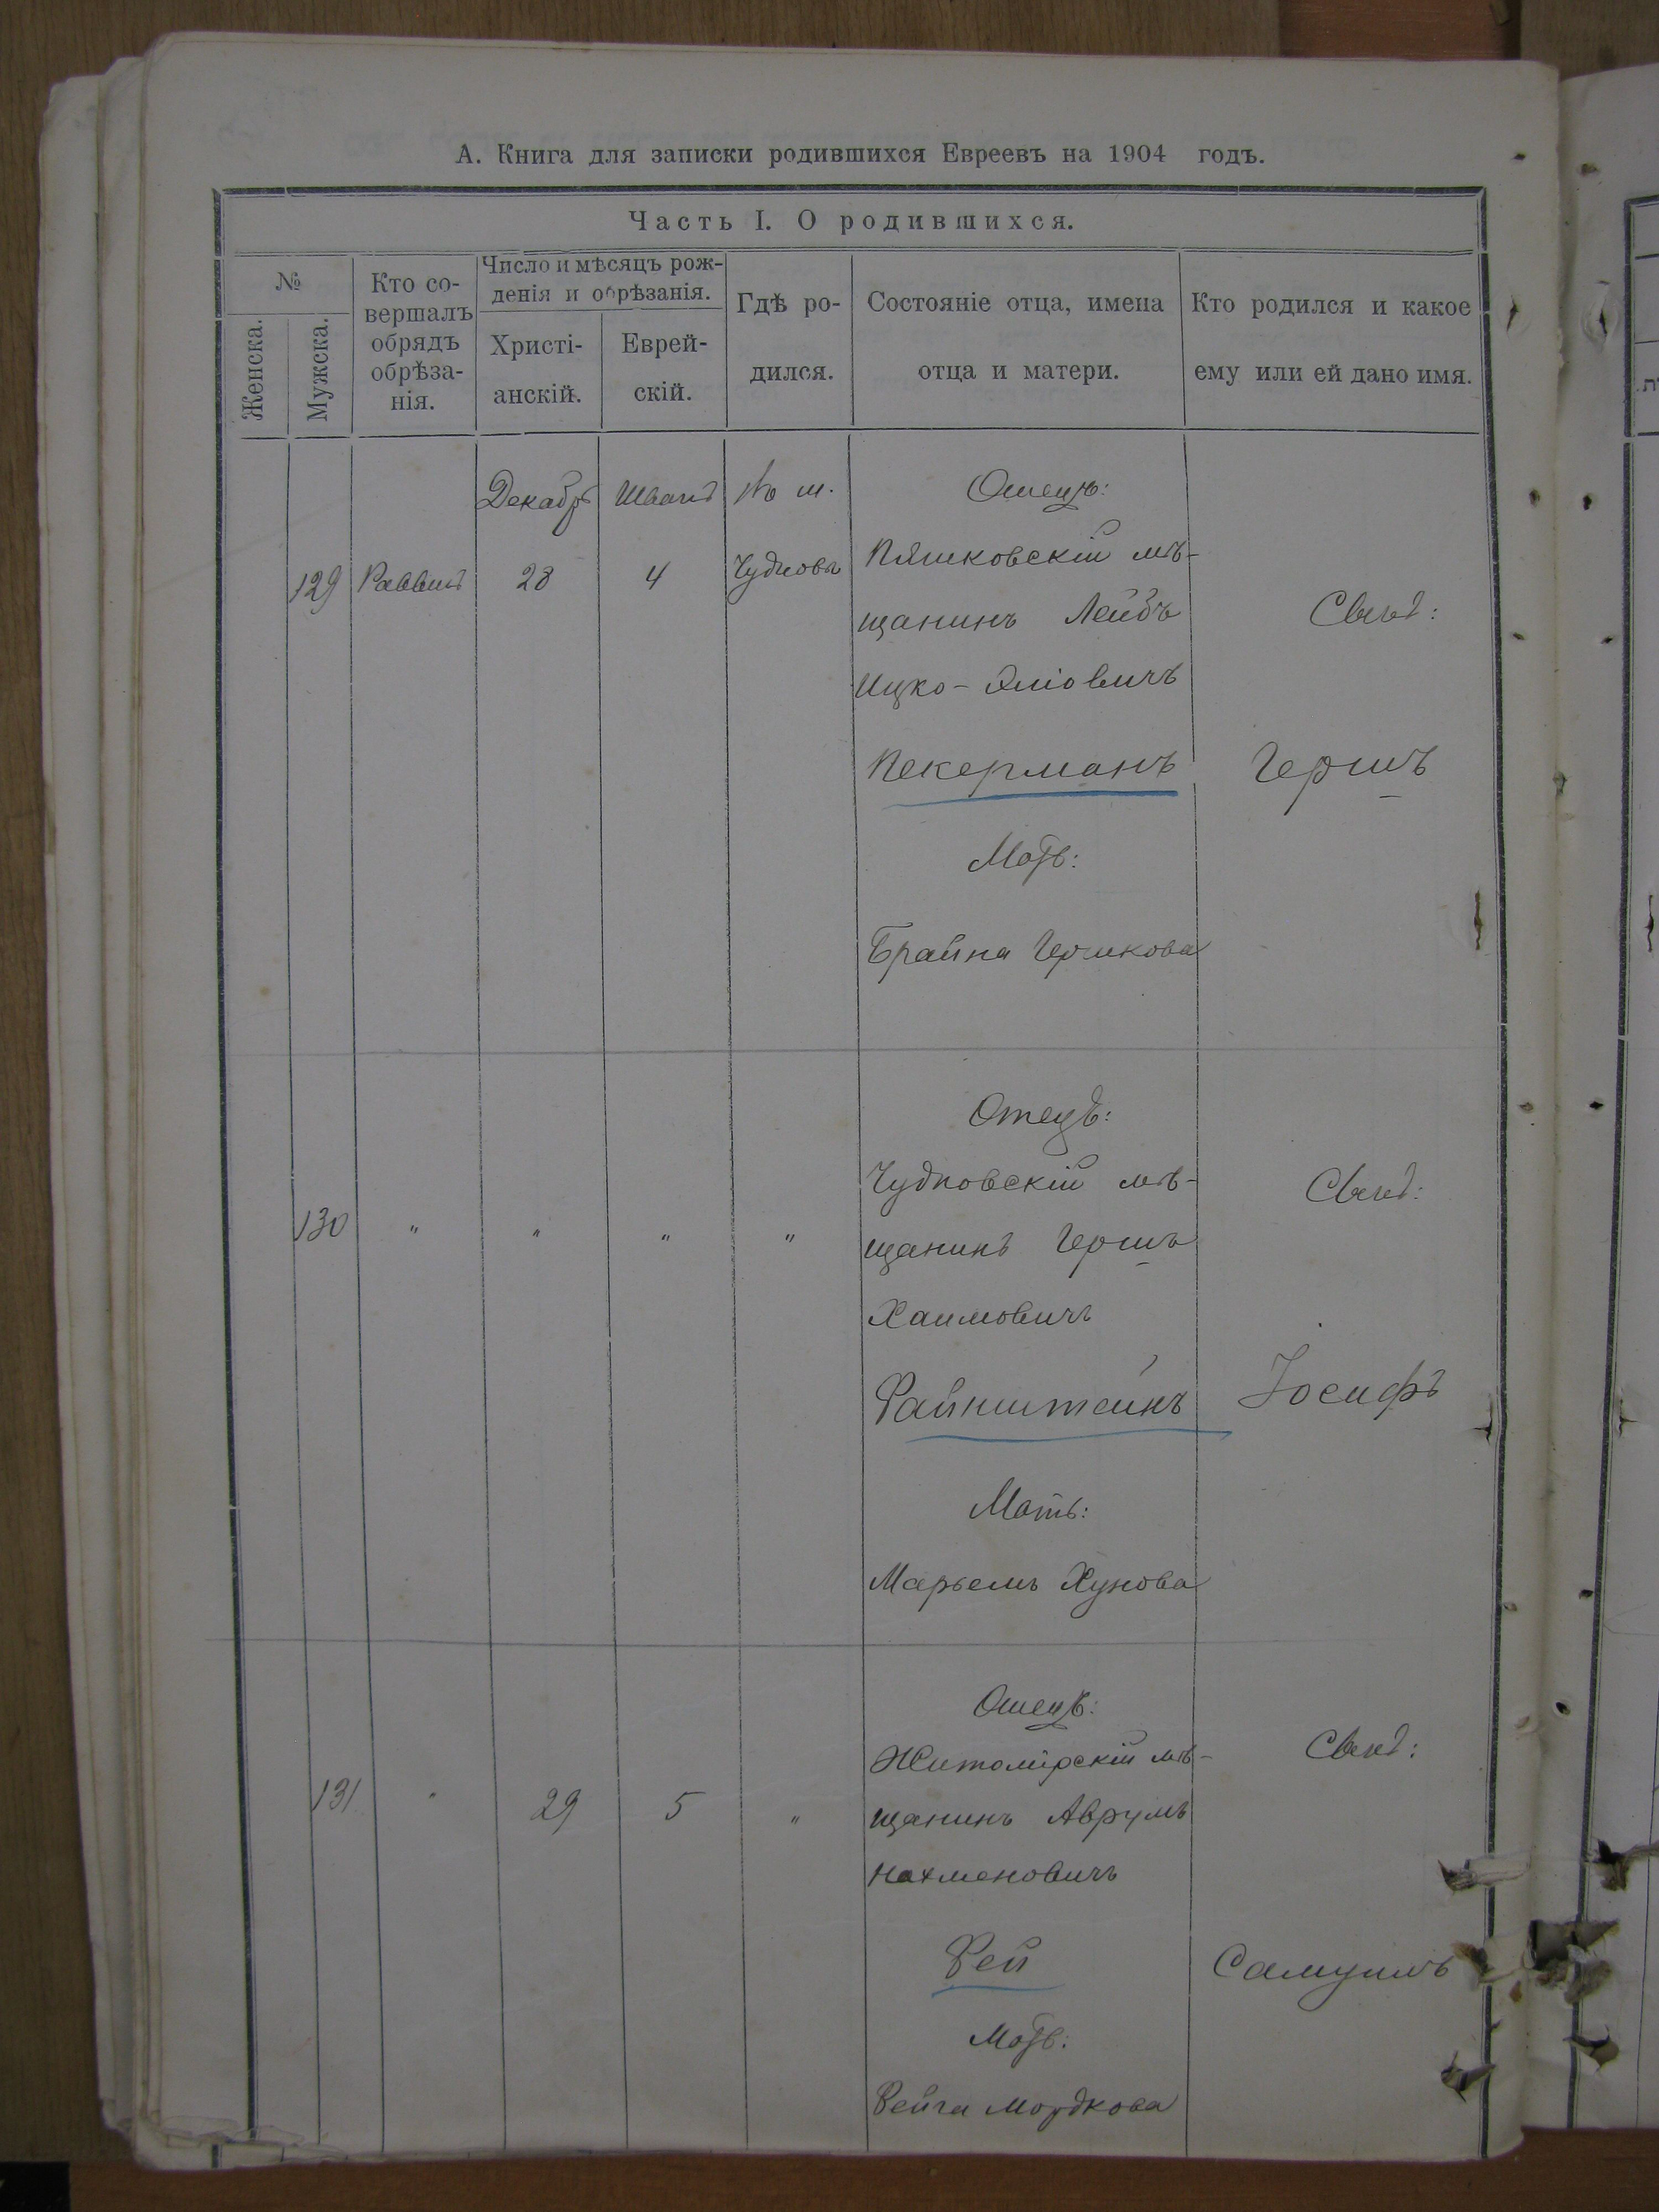 А. Книга для записки родившихся Евреевъ на 1904 годъ.
Часть I. О родившихся.
№
Женска.
Мужска.
Кто со-
вершалъ
обрядъ
обрѣза-
нія.
Число и мѣсяцъ рож-
денія и обрѣзанія.
Христі-
анскій.
Еврей-
скій.
Гдѣ ро-
дился.
Состояніе отца, имена
отца и матери.
Кто родился и какое
ему или ей дано имя.
Декабрь
Шватъ
Въ м.
Отецъ:
129 Раввинъ 28 4 Чудновъ
Пятковскій мѣ-
щанинъ Лейбъ
Ицко-Эліовичъ
Пекерманъ
Мать:
Брайна Гершкова
Сынъ:
Гершъ
130 " " " "
Отецъ:
Чудновскій мѣ-
щанинъ Гершъ
Хаимовичъ
Файнштейнъ
Мать:
Марьемъ Хунова
Сынъ:
Іосифъ
131 " 29 5 "
Отецъ:
Житомірскій мѣ-
щанинъ Аврумъ
Нахменовичъ
Фей
Мать:
Фейга Мордкова
Сынъ:
Самуилъ